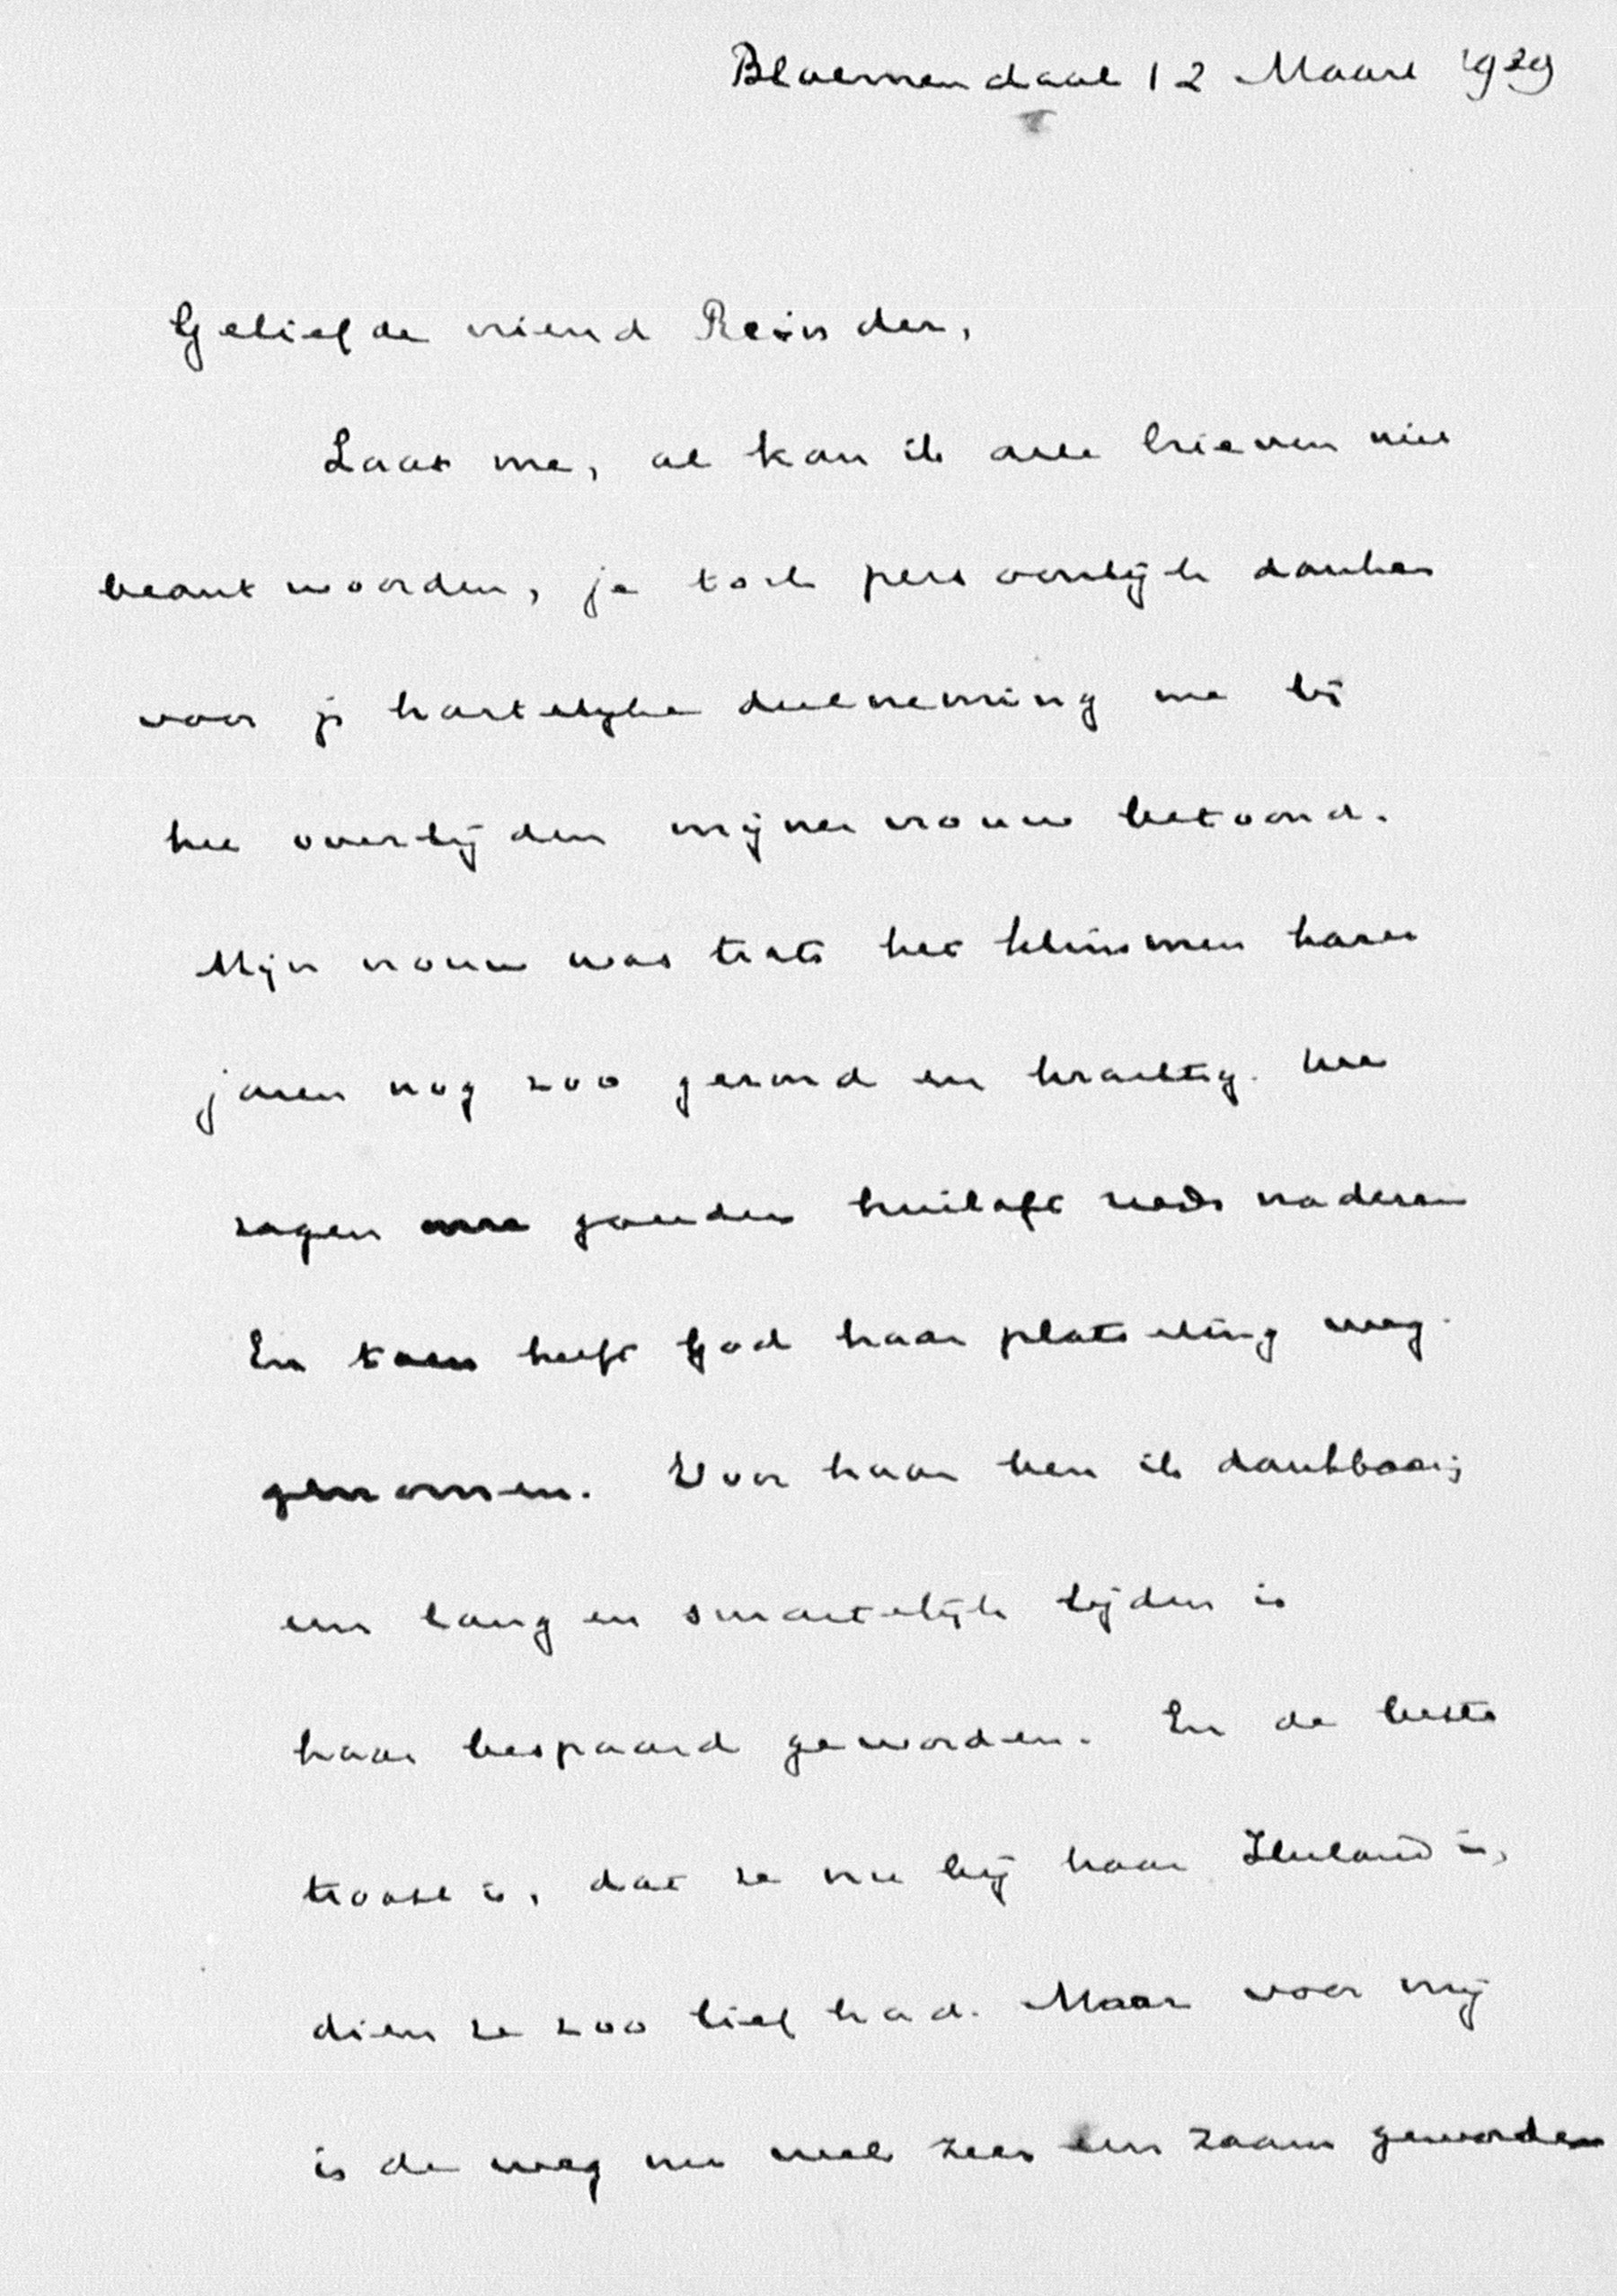 Bloemendaal 12 Maart 1929
Geliefde vriend Reinder,
Laat me, al kan ik alle brieven niet
beantwoorden, je toch persoonlijk danken
voor je hartelijke deelneming me bij
het overlijden mijner vrouw betoond.
Mijn vrouw was trots het klimmen harer
jaren nog zoo gezond en krachtig. We
zagen gouden huiloft reeds naderen
En toen heeft God haar plotseling weg-
genomen. Voor haar ben ik dankbaar;
een lang en smartelijk lijden is
haar bespaard geworden. En de beste
troost is, dat ze nu bij haar Heiland is,
dien ze zoo lief had. Maar voor mij
is de weg nu wel zeer eenzaam geworden